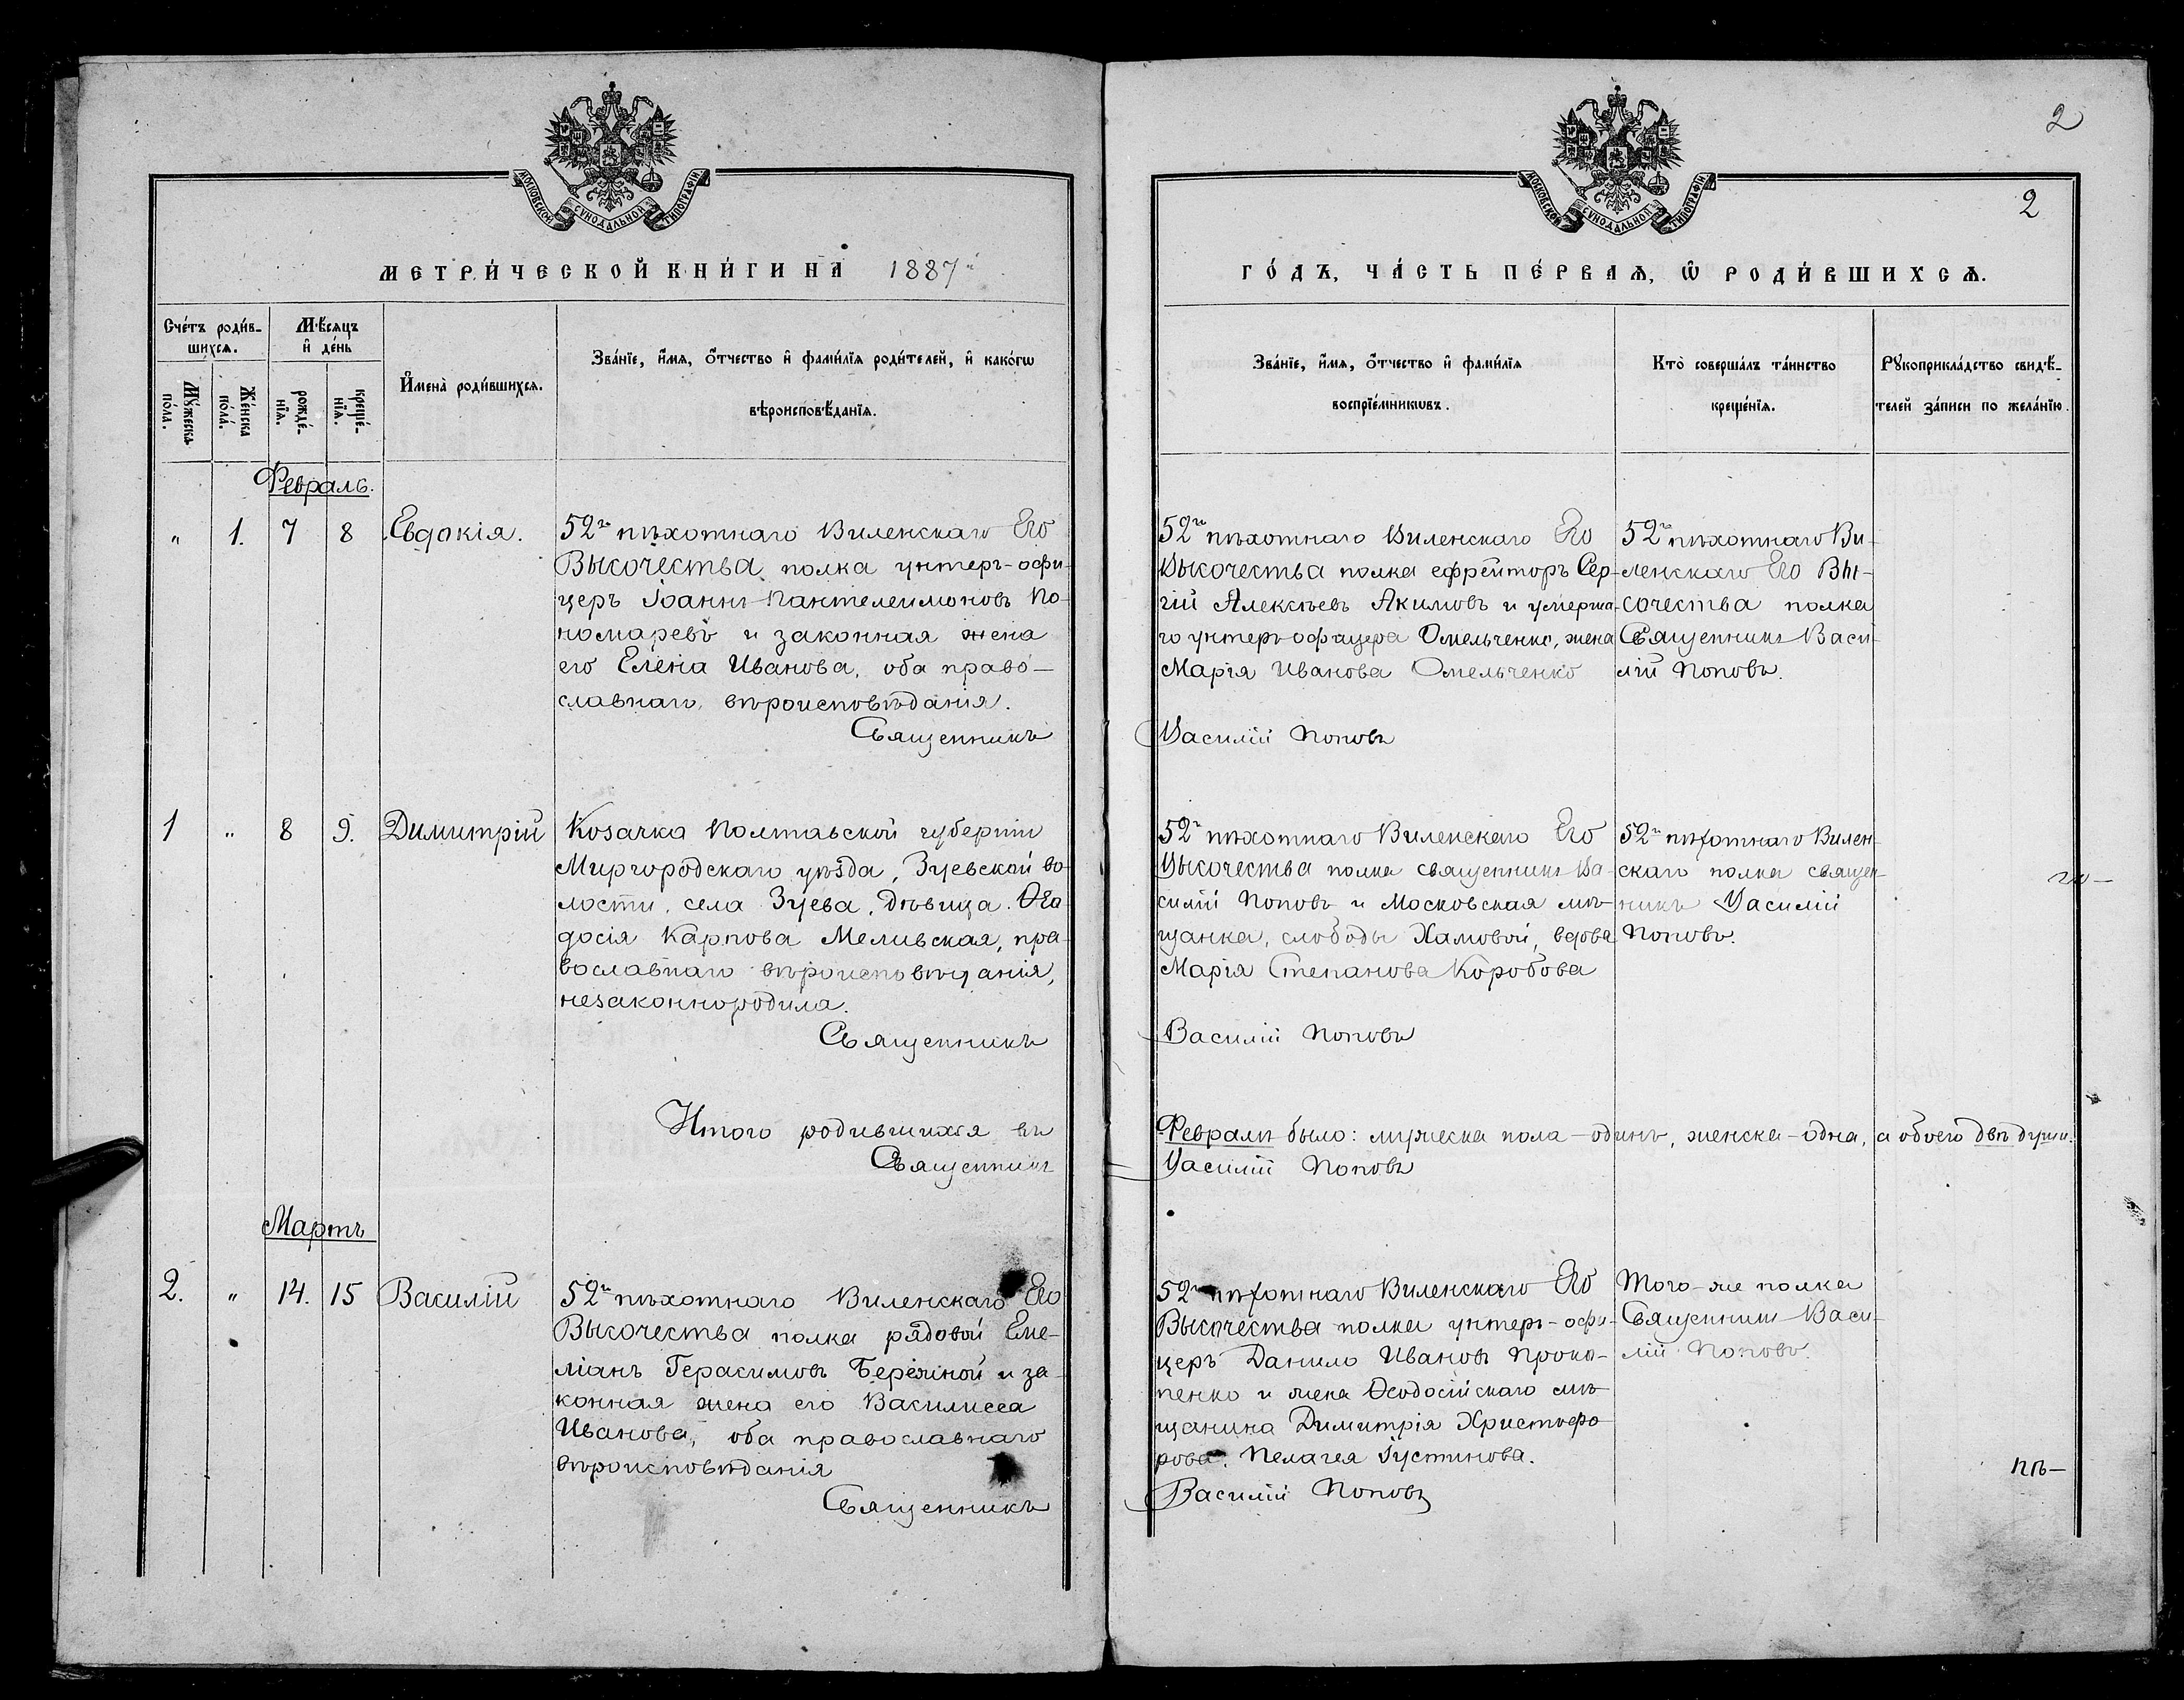 2
2
МОСКОВСКОЙ СУНОДАЛЬНОЙ ТИПОГРАФІИ
МЕТРИ́ЧЕСКОЙ КНИ́ГИ НА 1887й
Сче́тъ роди́в-
шихся.
Мѣ́сяцъ
и҆ де́нь
Му́жеска
по́ла.
Же́нска
по́ла.
рожде́-
нїя.
креще́-
нїя.
И҆мена̀ роди́вшихся.
Зва́нїе, и҆́мя, о҆́тчество и҆ фами́лїя роди́телей, и҆ како́гѡ
вѣроисповѣ́данїя.
Февраль.
" 1. 7 8 Евдокія.
52го пѣхотнаго Виленскаго Его
Высочества полка унтеръ-офи-
церъ Іоаннъ Пантелеимоновъ По-
номаревъ и законная жена
его Елена Иванова, оба право-
славнаго вѣроисповѣданія.
Священникъ
1 " 8 9. Димитрій
Козачка Полтавской губерніи
Миргородскаго уѣзда, Зуевской во-
лости, села Зуева, дѣвица Ѳео-
досія Карпова Меливская, пра-
вославнаго вѣроисповѣданія,
незаконнородила.
Священникъ
Итого родившихся въ
Священникъ
Мартъ
2. " 14. 15 Василій
52го пѣхотнаго Виленскаго Его
Высочества полка рядовой Еме-
ліанъ Герасимовъ Бережной и за-
конная жена его Василисса
Иванова, оба православнаго
вѣроисповѣданія
Священникъ
МОСКОВСКОЙ СУНОДАЛЬНОЙ ТИПОГРАФІИ
ГО́ДЪ, ЧА́СТЬ ПЕ́РВАЯ, Ѡ҆ РОДИ́ВШИХСЯ.
Зва́нїе, и҆́мя, о҆́тчество и҆ фами́лїя
воспрїе́мникѡвъ.
Кто̀ соверша́лъ та́инство
креще́нїя.
Рукоприкла́дство свидѣ́-
телей за́писи по жела́нїю.
52го пѣхотнаго Виленскаго Его
Высочества полка ефрейторъ Сер-
гій Алексѣевъ Акимовъ и умерша-
го унтеръ-офицера Омельченко, жена
Марія Иванова Омельченко
52го пѣхотнаго Ви-
ленскаго Его Вы-
сочества полка
Священникъ Васи-
лій Поповъ.
Василій Поповъ
52го пѣхотнаго Виленскаго Его
Высочества полка священникъ Ва-
силій Поповъ и Московская мѣ-
щанка, слободы Хамовой, вдова
Марія Степанова Коробова
52го пѣхотнаго Вилен-
скаго полка священ-
никъ Василій
Поповъ.
Василій Поповъ
Февралѣ было: мужеска пола - одинъ, женска - одна, а обоего двѣ души.
Василій Поповъ
52го пѣхотнаго Виленскаго Его
Высочества полка унтеръ-офи-
церъ Данило Ивановъ Проко-
пенко и жена Ѳеодосійскаго мѣ-
щанина Димитрія Христофо-
рова, Пелагея Іустинова.
Того-же полка
Священникъ Васи-
лій Поповъ.
Василій Поповъ